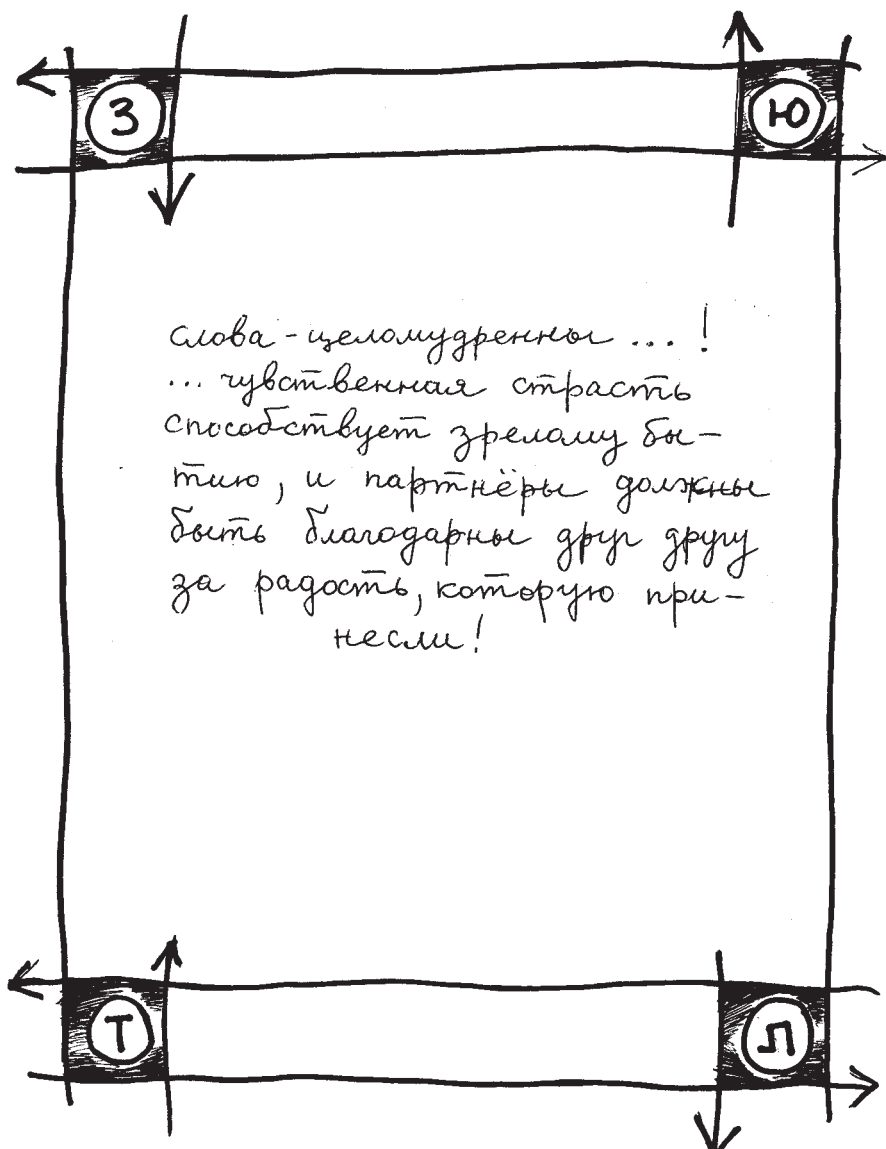 З
Ю
слова - целомудренны ... !
... чувственная страсть
способствует зрелому бы-
тию, и партнёры должны
быть благодарны друг другу
за радость, которую при-
несли!
Т
Л